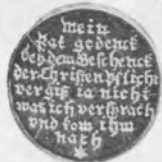 mein
Pat gedenck
bey dem Geschenck
der Christen Pflicht
vergis ia nicht
was ich versprach
vnd kom ihm
nach